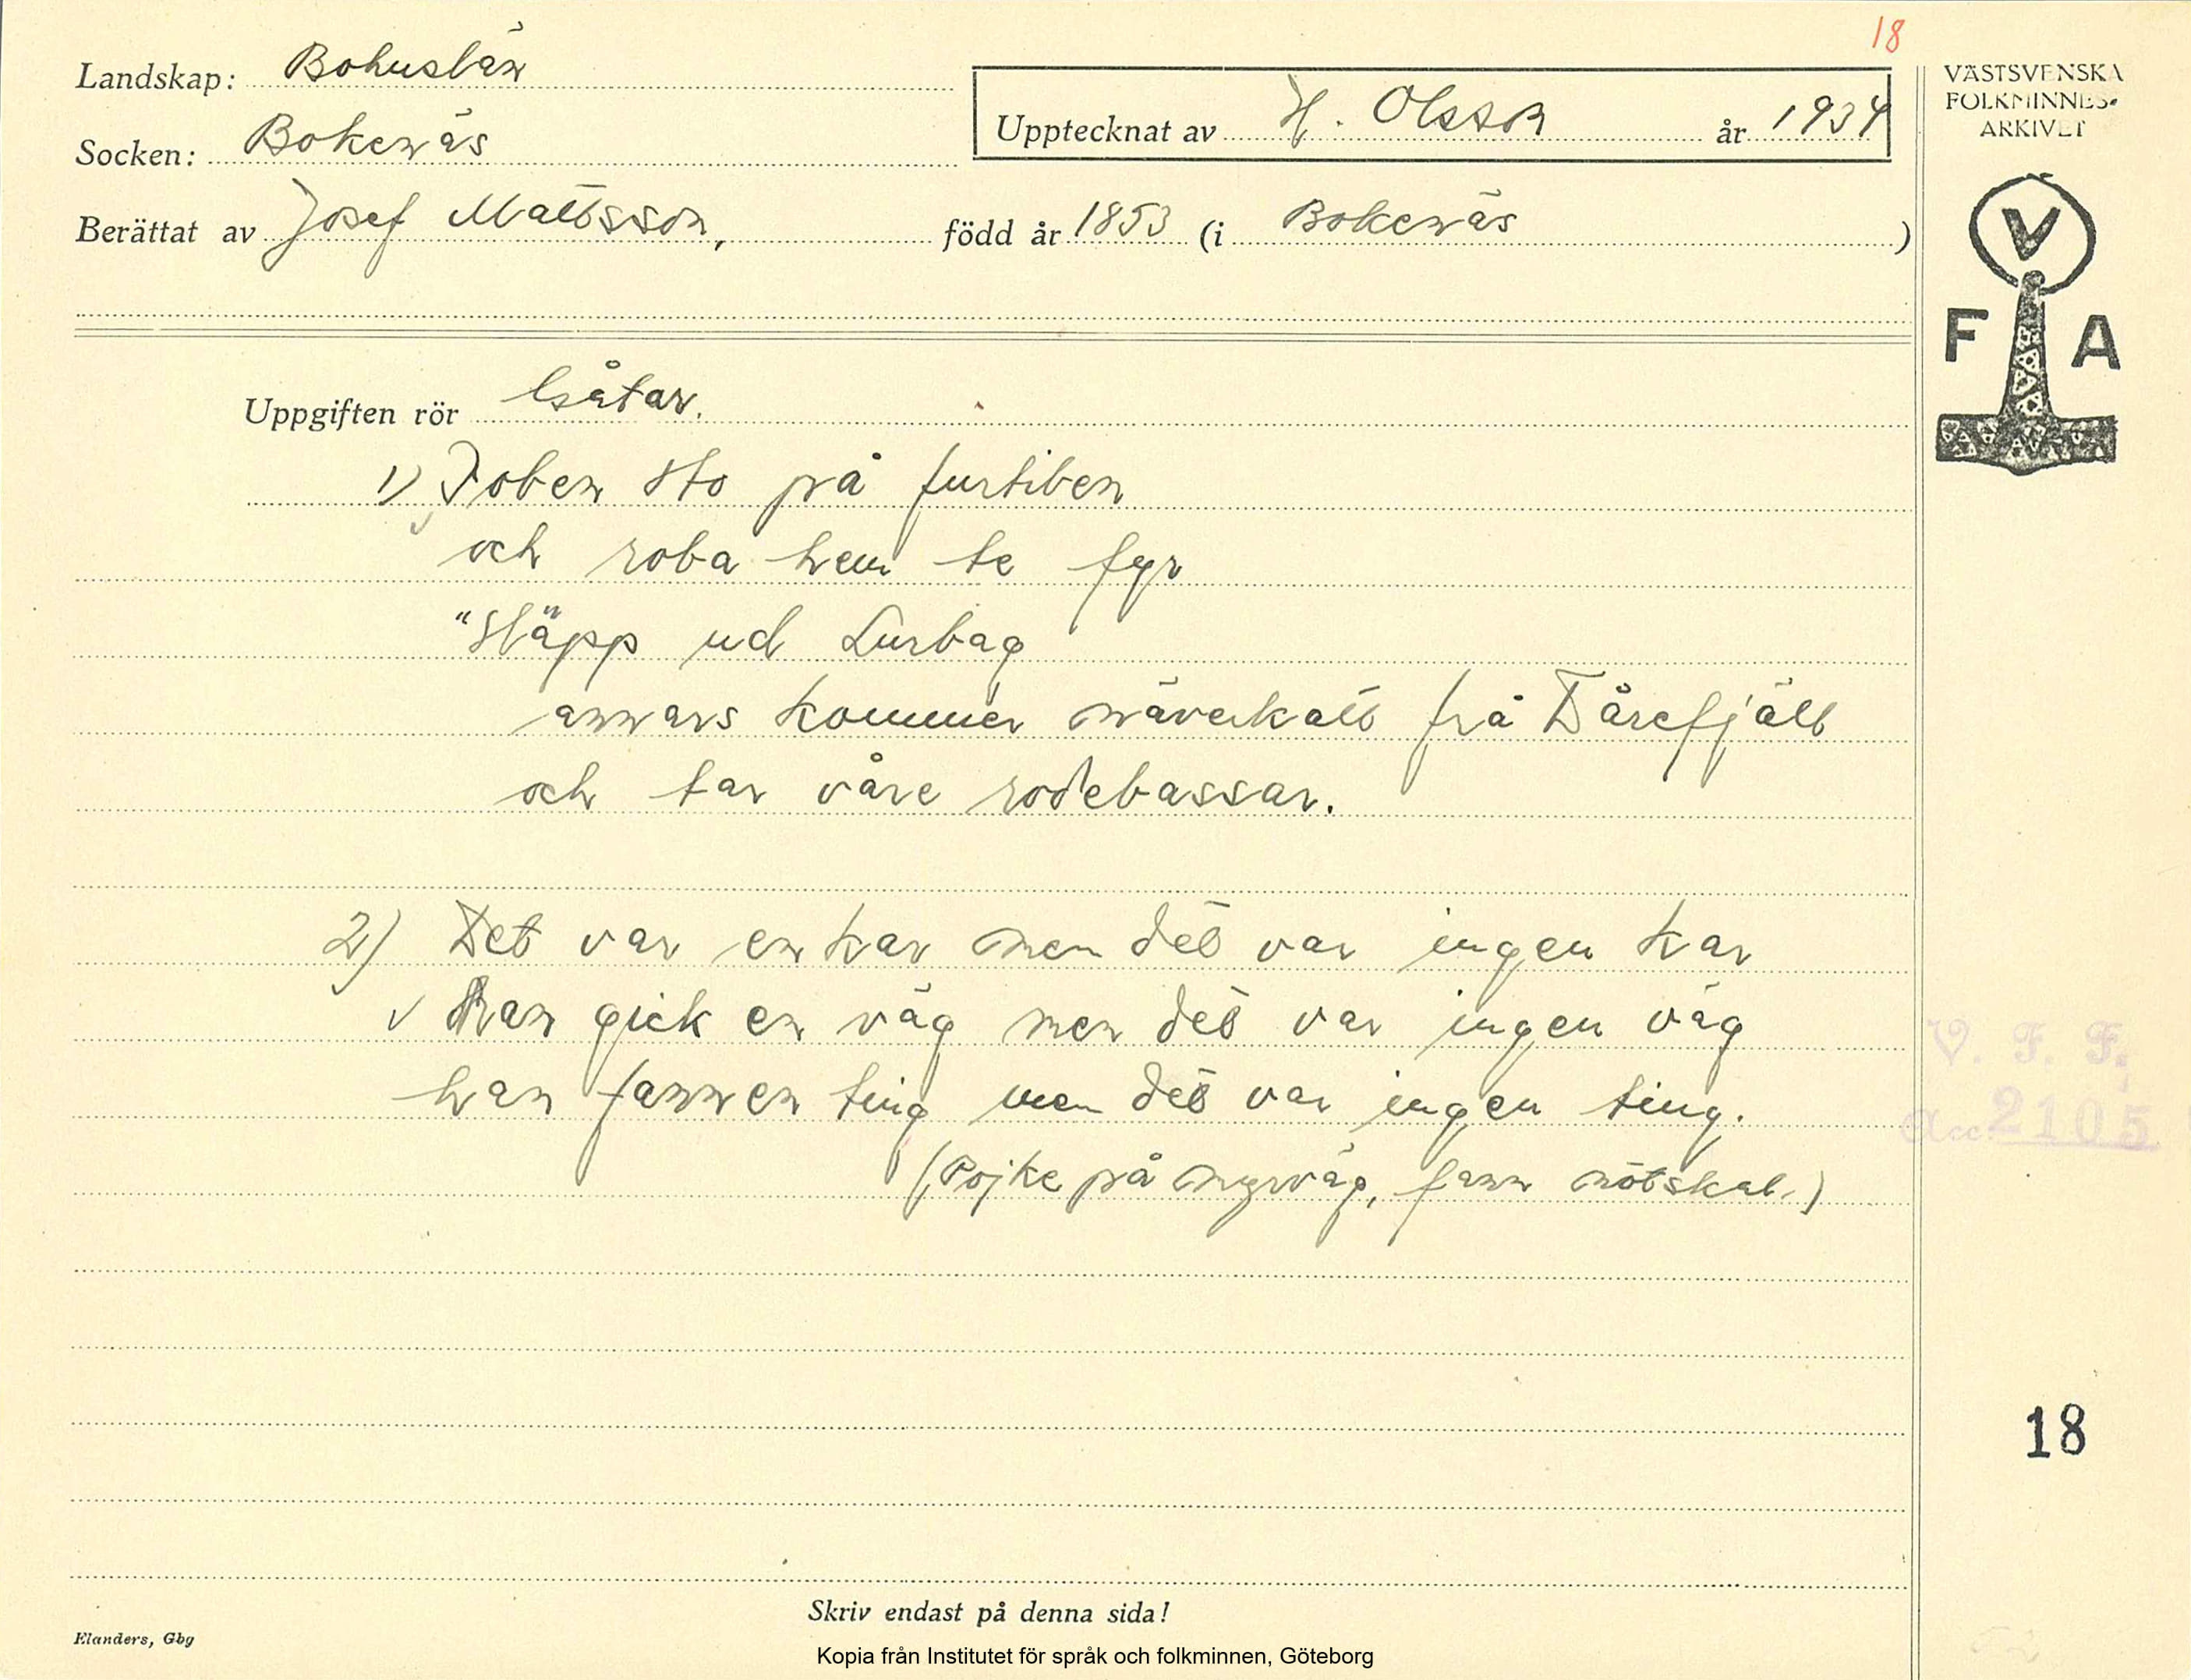 18
Landskap: Bohuslän
Socken: Bokenäs
Upptecknat av H. Olsson år 1934
Berättat av Josef Mattsson, född år 1853 (i Bokenäs)
VÄSTSVENSKA
FOLKMINNES-
ARKIVET
V
F A
Uppgiften rör Gåtar.
1) Joben sto på furtiben
och roba hem te fyr
"Släpp ud Lurbag
annars kommer näverkatt frå Dårefjäll
och tar våre rodebassar.
2) Det var en kar men det var ingen kar
han gick en väg men det var ingen väg
han fann en ting men det var ingen ting.
(Pojke på myrväg, fann nötskal.)
V. F. F.
Acc. 2105
18
Skriv endast på denna sida!
Elanders, Gbg
Kopia från Institutet för språk och folkminnen, Göteborg